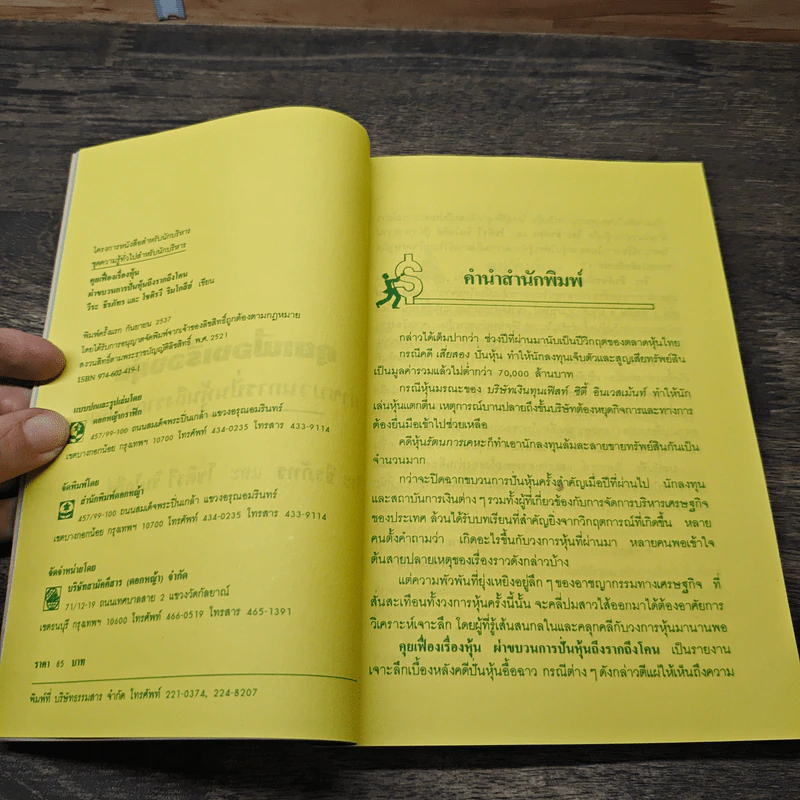 โครงการหนังสือสำหรับนักบริหาร
ชุดความรู้ทั่วไปสำหรับนักบริหาร
คุยเฟื่องเรื่องหุ้น
ผ่าขบวนการปั่นหุ้นถึงรากถึงโคน
วีระ ธีรภัทร และ โชติรวี วิมโกสีย์ เขียน
พิมพ์ครั้งแรก กันยายน 2537
โดยได้รับการอนุญาตจัดพิมพ์จากเจ้าของลิขสิทธิ์ถูกต้องตามกฎหมาย
สงวนสิทธิ์ตามพระราชบัญญัติลิขสิทธิ์ พ.ศ. 2521
ISBN 974-602-419-1
แบบปกและรูปเล่มโดย
ดอกหญ้ากราฟิก
457/99-100 ถนนสมเด็จพระปิ่นเกล้า แขวงอรุณอมรินทร์
เขตบางกอกน้อย กรุงเทพฯ 10700 โทรศัพท์ 434-0235 โทรสาร 433-9114
จัดพิมพ์โดย
สำนักพิมพ์ดอกหญ้า
457/99-100 ถนนสมเด็จพระปิ่นเกล้า แขวงอรุณอมรินทร์
เขตบางกอกน้อย กรุงเทพฯ 10700 โทรศัพท์ 434-0235 โทรสาร 433-9114
จัดจำหน่ายโดย
บริษัทสามัคคีสาร (ดอกหญ้า) จำกัด
71/12-19 ถนนเทศบาลสาย 2 แขวงวัดกัลยาณ์
เขตธนบุรี กรุงเทพฯ 10600 โทรศัพท์ 466-0519 โทรสาร 465-1391
ราคา 85 บาท
พิมพ์ที่ บริษัทธรรมสาร จำกัด โทรศัพท์ 221-0374, 224-8207
คำนำสำนักพิมพ์
กล่าวได้เต็มปากว่า ช่วงปีที่ผ่านมานับเป็นปีวิกฤตของตลาดหุ้นไทย
กรณีคดี เสี่ยสอง ปั่นหุ้น ทำให้นักลงทุนเจ็บตัวและสูญเสียทรัพย์สิน
เป็นมูลค่ารวมแล้วไม่ต่ำกว่า 70,000 ล้านบาท
กรณีหุ้นมรณะของ บริษัทเงินทุนเฟิสท์ ซิตี้ อินเวสเม้นท์ ทำให้นัก
เล่นหุ้นแตกตื่น เหตุการณ์บานปลายถึงขั้นบริษัทต้องหยุดกิจการและทางการ
ต้องยื่นมือเข้าไปช่วยเหลือ
คดีหุ้นรัตนการเคหะก็ทำเอานักลงทุนล้มละลายขายทรัพย์สินกันเป็น
จำนวนมาก
กว่าจะปิดฉากขบวนการปั่นหุ้นครั้งสำคัญเมื่อปีที่ผ่านไป นักลงทุน
และสถาบันการเงินต่าง ๆ รวมทั้งผู้ที่เกี่ยวข้องกับการจัดการบริหารเศรษฐกิจ
ของประเทศ ล้วนได้รับบทเรียนที่สำคัญยิ่งจากวิกฤตการณ์ที่เกิดขึ้น หลาย
คนตั้งคำถามว่า เกิดอะไรขึ้นกับวงการหุ้นที่ผ่านมา หลายคนพอเข้าใจ
ต้นสายปลายเหตุของเรื่องราวดังกล่าวบ้าง
แต่ความพัวพันที่ยุ่งเหยิงอยู่ลึก ๆ ของอาชญากรรมทางเศรษฐกิจ ที่
สั่นสะเทือนทั้งวงการหุ้นครั้งนี้นั้น จะคลี่ปมสาวไส้ออกมาได้ต้องอาศัยการ
วิเคราะห์เจาะลึก โดยผู้ที่รู้เส้นสนกลในและคลุกคลีกับวงการหุ้นมานานพอ
คุยเฟื่องเรื่องหุ้น ผ่าขบวนการปั่นหุ้นถึงรากถึงโคน เป็นรายงาน
เจาะลึกเบื้องหลังคดีปั่นหุ้นอื้อฉาว กรณีต่าง ๆ ดังกล่าวตีแผ่ให้เห็นถึงความ